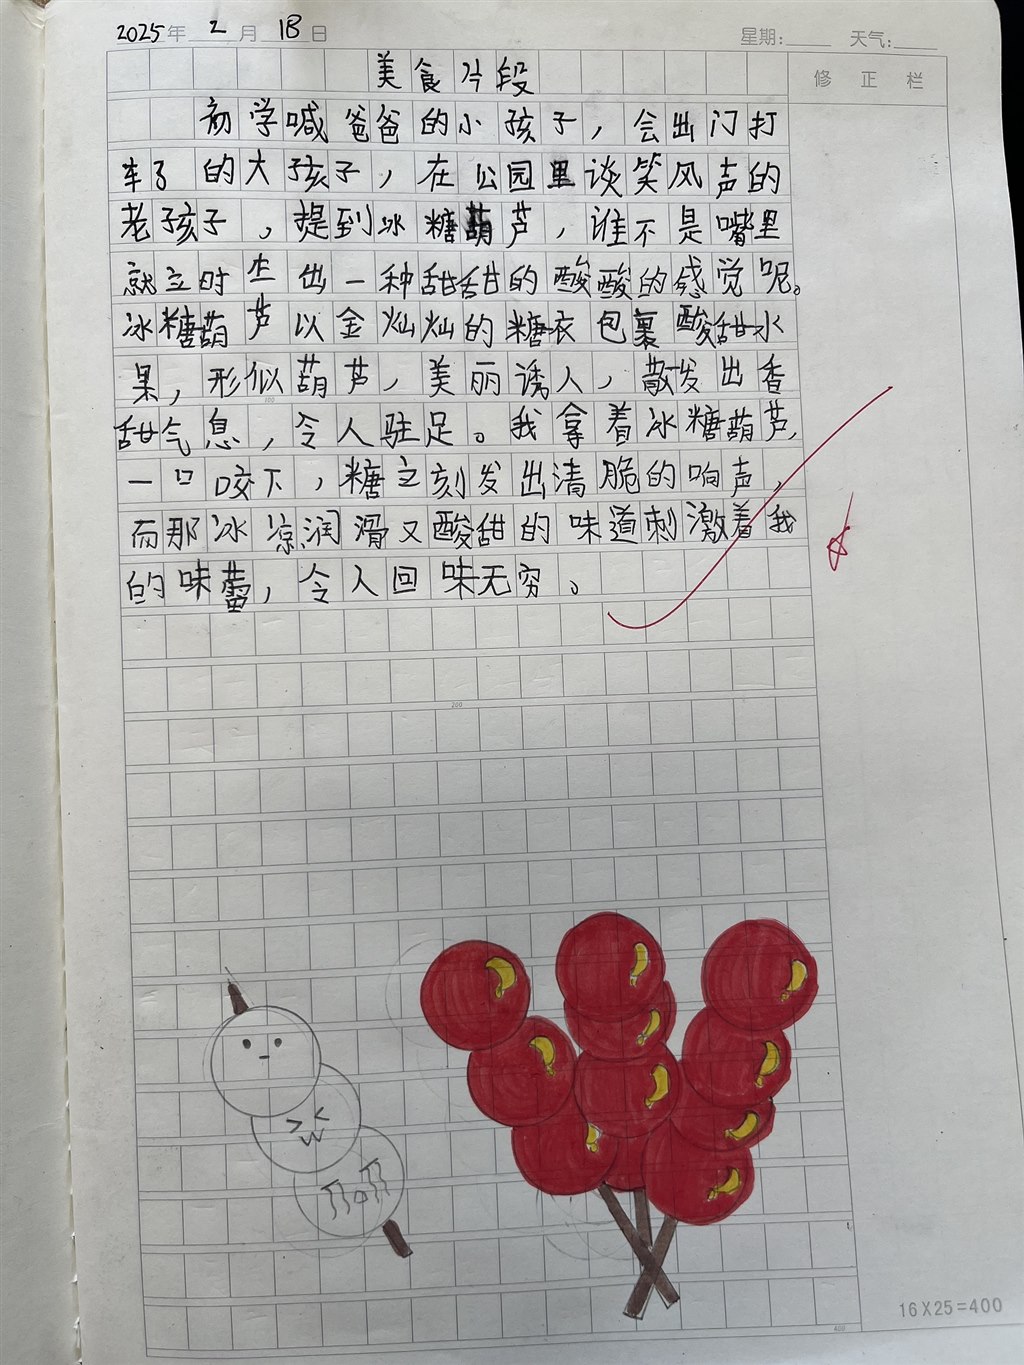 2025年 2月 18日 星期: 天气:
修正栏
美食片段
初学喊爸爸的小孩子，会出门打
车了的大孩子，在公园里谈笑风声的
老孩子，提到冰糖葫芦，谁不是嘴里
就立时生出一种甜甜的酸酸的感觉呢。
冰糖葫芦以金灿灿的糖衣包裹酸甜水
果，形似葫芦，美丽诱人，散发出香
甜气息，令人驻足。我拿着冰糖葫芦，
一口咬下，糖立刻发出清脆的响声，
而那冰凉润滑又酸甜的味道刺激着我
的味蕾，令人回味无穷。
100
200
16X25=400
400